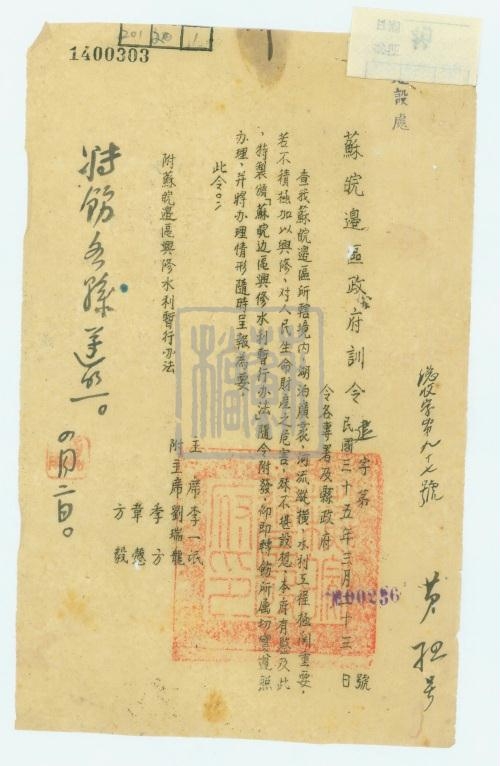 201 20 1
1400303
建設處
總收字第九十七號
黄秘号
蘇皖邊區政府訓令 建字第 號
00256
民國三十五年三月二十三日
令各專署及縣政府
查我蘇皖邊區所轄境内湖泊廣袤，河流縱横，水利工程極關重要，
若不積極加以興修，对人民生命財產之危害，殊不堪設想，本府有鑒及此
，特製頒「蘇皖边區興修水利暫行办法」隨令附發，仰即轉飭所属切實遵照
办理，并將办理情形隨時呈報為要。
此令。
附蘇皖邊區興修水利暫行办法
主 席 李一氓
附主席 劉瑞龍
季 方
韋 慤
方 毅
轉飭各縣遵照。
四月二日。